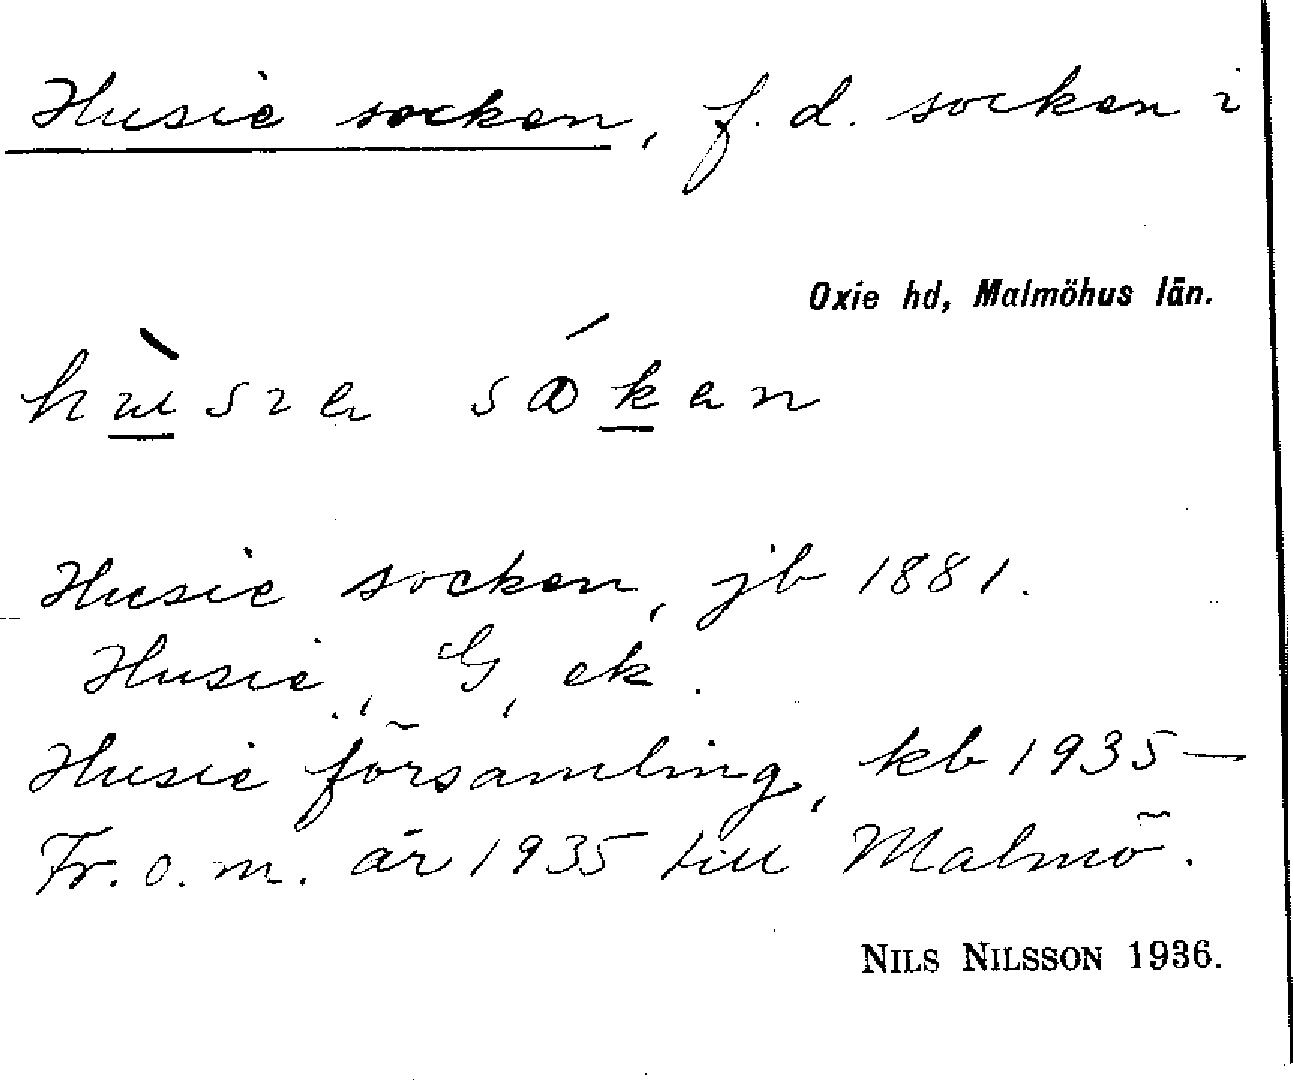 Husie socken, f. d. socken i
Oxie hd, Malmöhus län.
Husie socken, jb 1881.
Husie, G, ek.
Husie församling, kb 1935—
Fr. o. m. år 1935 till Malmö.
NILS NILSSON 1936.